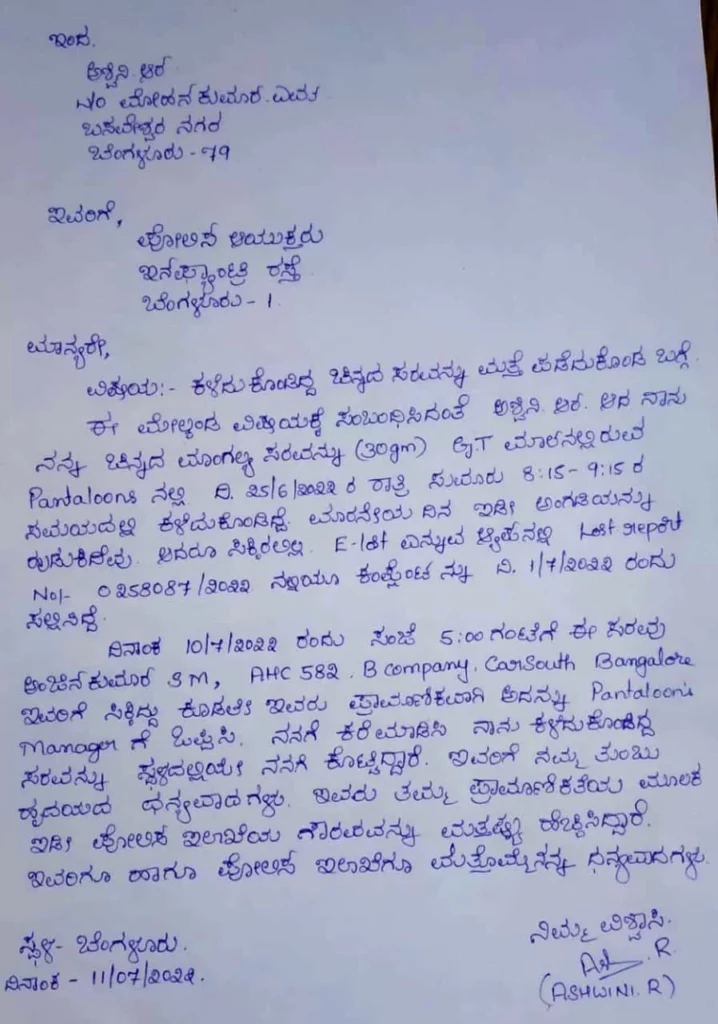 ಇಂದ.
ಅಶ್ವಿನಿ ಆರ್
w/o ಮೋಹನ ಕುಮಾರ್. ಎಮ್
ಬಸವೇಶ್ವರ ನಗರ
ಬೆಂಗಳೂರು - 79
ಇವರಿಗೆ,
ಪೋಲಿಸ್ ಆಯುಕ್ತರು
ಇನಫ್ಯಾಂಟ್ರಿ ರಸ್ತೆ
ಬೆಂಗಳೂರು - 1.
ಮಾನ್ಯರೇ,
ವಿಷಯ:- ಕಳೆದುಕೊಂಡಿದ್ದ ಚಿನ್ನದ ಸರವನ್ನು ಮತ್ತೆ ಪಡೆದುಕೊಂಡ ಬಗ್ಗೆ.
ಈ ಮೇಲ್ಕಂಡ ವಿಷಯಕ್ಕೆ ಸಂಬಂಧಿಸಿದಂತೆ ಅಶ್ವಿನಿ ಆರ್. ಆದ ನಾನು
ನನ್ನ ಚಿನ್ನದ ಮಾಂಗಲ್ಯ ಸರವನ್ನು (30gm) G.T ಮಾಲ್‌ನಲ್ಲಿರುವ
Pantaloons ನಲ್ಲಿ ದಿ. 25/6/2022 ರ ರಾತ್ರಿ ಸುಮಾರು 8:15 - 9:15 ರ
ಸಮಯದಲ್ಲಿ ಕಳೆದುಕೊಂಡಿದ್ದೆ. ಮಾರನೇಯ ದಿನ ಇಡೀ ಅಂಗಡಿಯನ್ನು
ಹುಡುಕಿದೆವು. ಆದರೂ ಸಿಕ್ಕಿರಲಿಲ್ಲ. E-lost ಎನ್ನುವ ಆ್ಯಪ್‌ನಲ್ಲಿ Lost report
No/- 0258087/2022 ನಲ್ಲಿಯೂ ಕಂಪ್ಲೇಂಟ್ ನ್ನು ದಿ. 1/7/2022 ರಂದು
ಸಲ್ಲಿಸಿದ್ದೆ.
ದಿನಾಂಕ 10/7/2022 ರಂದು ಸಂಜೆ 5:00 ಗಂಟೆಗೆ ಈ ಸರವು
ಅಂಜನ್ ಕುಮಾರ್ S M, AHC 582. B company, CarSouth Bangalore
ಇವರಿಗೆ ಸಿಕ್ಕಿದ್ದು ಕೂಡಲೇ ಇವರು ಪ್ರಾಮಾಣಿಕವಾಗಿ ಅದನ್ನು Pantaloons
Manager ಗೆ ಒಪ್ಪಿಸಿ. ನನಗೆ ಕರೆಮಾಡಿಸಿ ನಾನು ಕಳೆದುಕೊಂಡಿದ್ದ
ಸರವನ್ನು ಸ್ಥಳದಲ್ಲಿಯೇ ನನಗೆ ಕೊಟ್ಟಿದ್ದಾರೆ. ಇವರಿಗೆ ನಮ್ಮ ತುಂಬು
ಹೃದಯದ ಧನ್ಯವಾದಗಳು. ಇವರು ತಮ್ಮ ಪ್ರಾಮಾಣಿಕತೆಯ ಮೂಲಕ
ಇಡೀ ಪೋಲಿಸ್ ಇಲಾಖೆಯ ಗೌರವವನ್ನು ಮತ್ತಷ್ಟು ಹೆಚ್ಚಿಸಿದ್ದಾರೆ.
ಇವರಿಗೂ ಹಾಗೂ ಪೋಲಿಸ್ ಇಲಾಖೆಗೂ ಮತ್ತೊಮ್ಮೆ ನನ್ನ ಧನ್ಯವಾದಗಳು.
ಸ್ಥಳ - ಬೆಂಗಳೂರು.
ದಿನಾಂಕ - 11/07/2022.
ನಿಮ್ಮ ವಿಶ್ವಾಸಿ.
(ASHWINI. R)